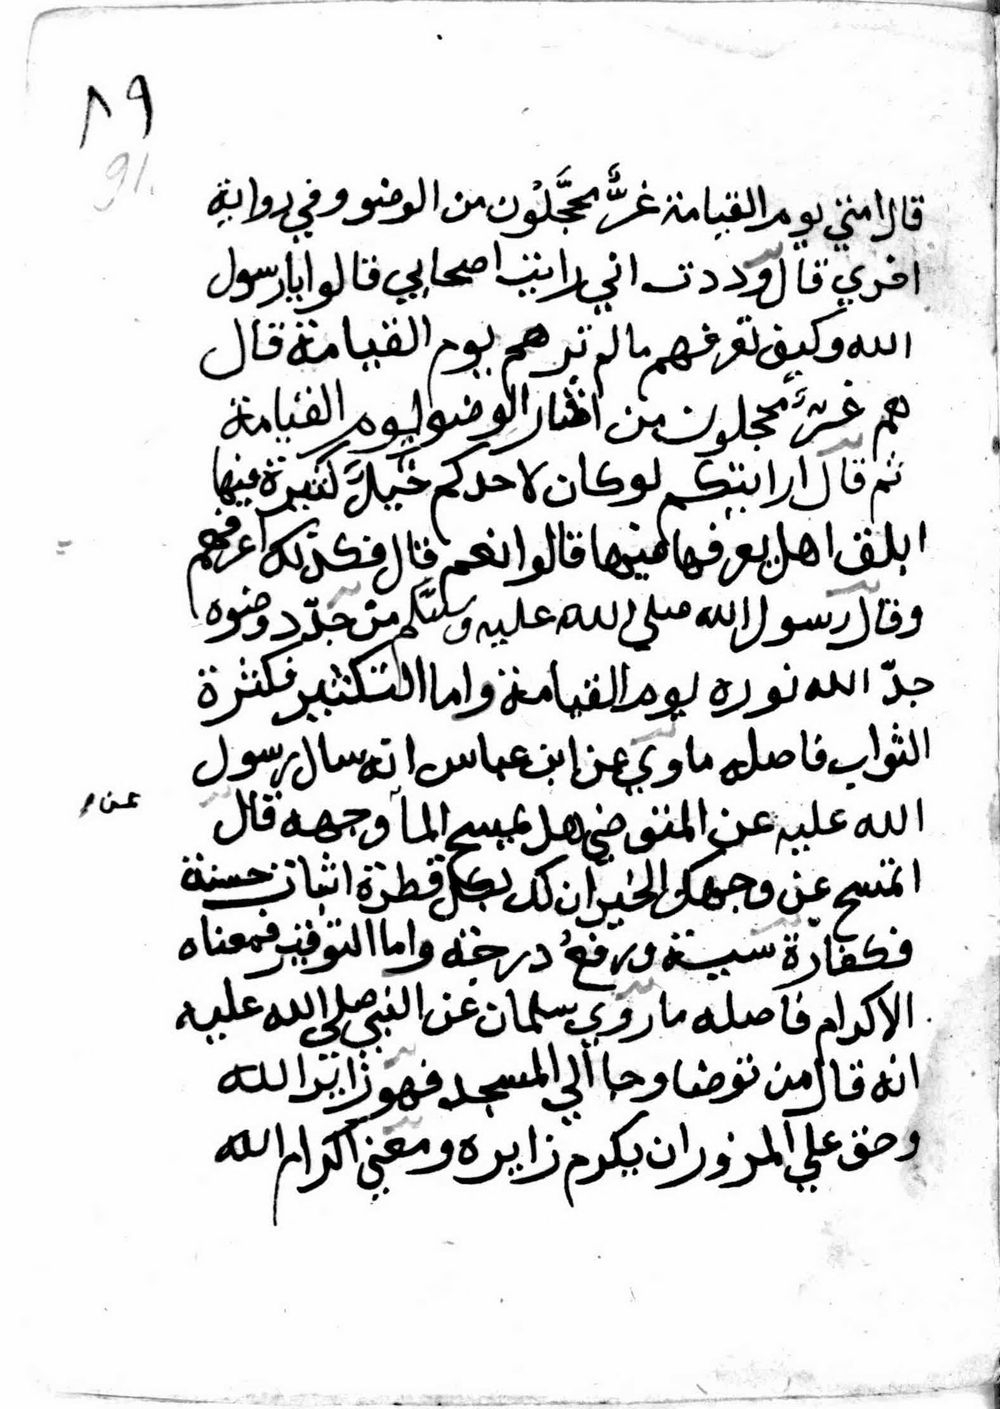 ٨٩
91
قال امتي يوم القيامة غرٌّ محجَّلُون من الوضو وفي رواية
اخري قال وددت اني رايت اصحابي قالوا يا رسول
الله وكيف تعرفهم ما لم ترهم يوم القيامة قال
هم غرٌّ محجلون من اظهار الوضو ليوم القيامة
ثم قال ارايتكم لو كان لاحدكم خَيلٌ كثيرة فيها
ابلق اهل يعرفها فيها قالوا نعم قال فكذلك اعرفهم
وقال رسول الله صلي الله عليه وسلَّم من جدّد وضوه
جدّ الله نوره يوم القيامة واما التكثير فكثرة
الثواب فاصله ماوي عن ابن عباس انه سال رسول
الله عليه عن المتوضي هل يمسح المآ وجهه قال
عن
اتمسح عن وجهك الخير ان لك بكل قطرة اثبات حسنة
فكفارة سيئة ورفعُ درجة واما التوقير فمعناه
الاكرام فاصله ما روي سلمان عن النبي صلي الله عليه
انه قال من توضا وجا الي المسجد فهو زاير الله
وحق علي المزور ان يكرم زايره ومعني اكرام الله